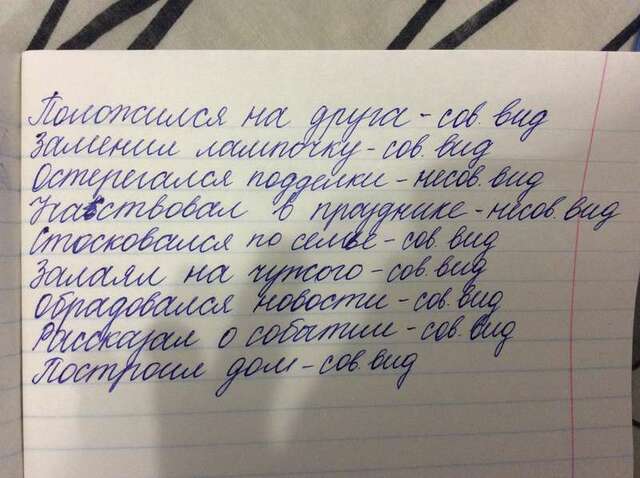 Положился на друга - сов. вид
Заменил лампочку - сов. вид
Остерегался подделки - несов. вид
Учавствовал в празднике - несов. вид
Стосковался по семье - сов. вид
Залаял на чужого - сов. вид
Обрадовался новости - сов. вид
Рассказал о событии - сов. вид
Построил дом - сов. вид